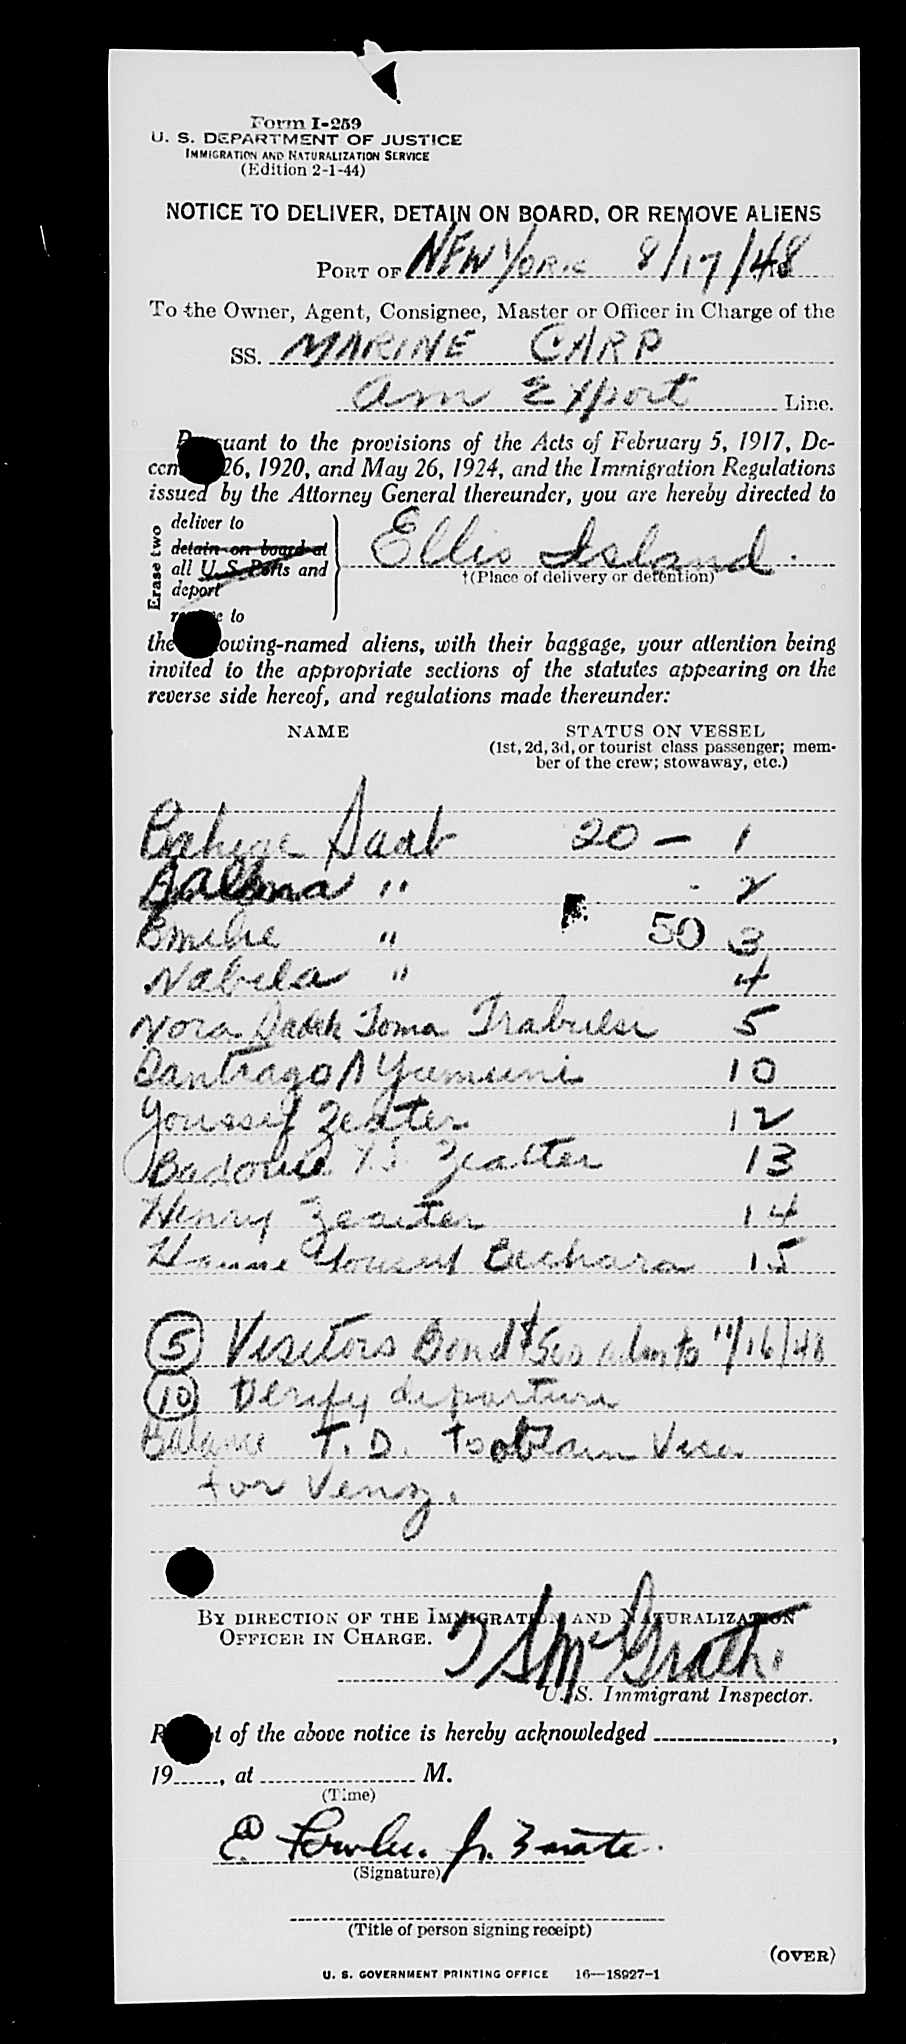 Form I-259
U. S. DEPARTMENT OF JUSTICE
IMMIGRATION AND NATURALIZATION SERVICE
(Edition 2-1-44)
NOTICE TO DELIVER, DETAIN ON BOARD, OR REMOVE ALIENS
PORT OF NEW YORK 8/17/48
To the Owner, Agent, Consignee, Master or Officer in Charge of the
SS. MARINE CARP
Am Export Line.
Pursuant to the provisions of the Acts of February 5, 1917, De-
cem 26, 1920, and May 26, 1924, and the Immigration Regulations
issued by the Attorney General thereunder, you are hereby directed to
Erase two
deliver to
detain on board at
all U. S. Ports and
deport
remove to
Ellis Island.
†(Place of delivery or detention)
the following-named aliens, with their baggage, your attention being
invited to the appropriate sections of the statutes appearing on the
reverse side hereof, and regulations made thereunder:
NAME STATUS ON VESSEL
(1st, 2d, 3d, or tourist class passenger; mem-
ber of the crew; stowaway, etc.)
Saab 20 — 1
" 2
Emelie " 50 3
Nabela " 4
Nora Dadek Toma Trabulsi 5
Santiago A Yumuni 10
Youssef Zeater 12
Badouie Y.S. Zeatter 13
Henry Zeaiter 14
Hanne Youssef Bechara 15
5 Visitors Bond $500 adm to 11/16/48
10 Verify departure
Balance T. D. to obtain Visa
for Venz.
BY DIRECTION OF THE IMMIGRATION AND NATURALIZATION
OFFICER IN CHARGE.
McGrath
U. S. Immigrant Inspector.
Receipt of the above notice is hereby acknowledged ,
19 , at M.
(Time)
(Signature)
(Title of person signing receipt)
(OVER)
U. S. GOVERNMENT PRINTING OFFICE 16—18927-1